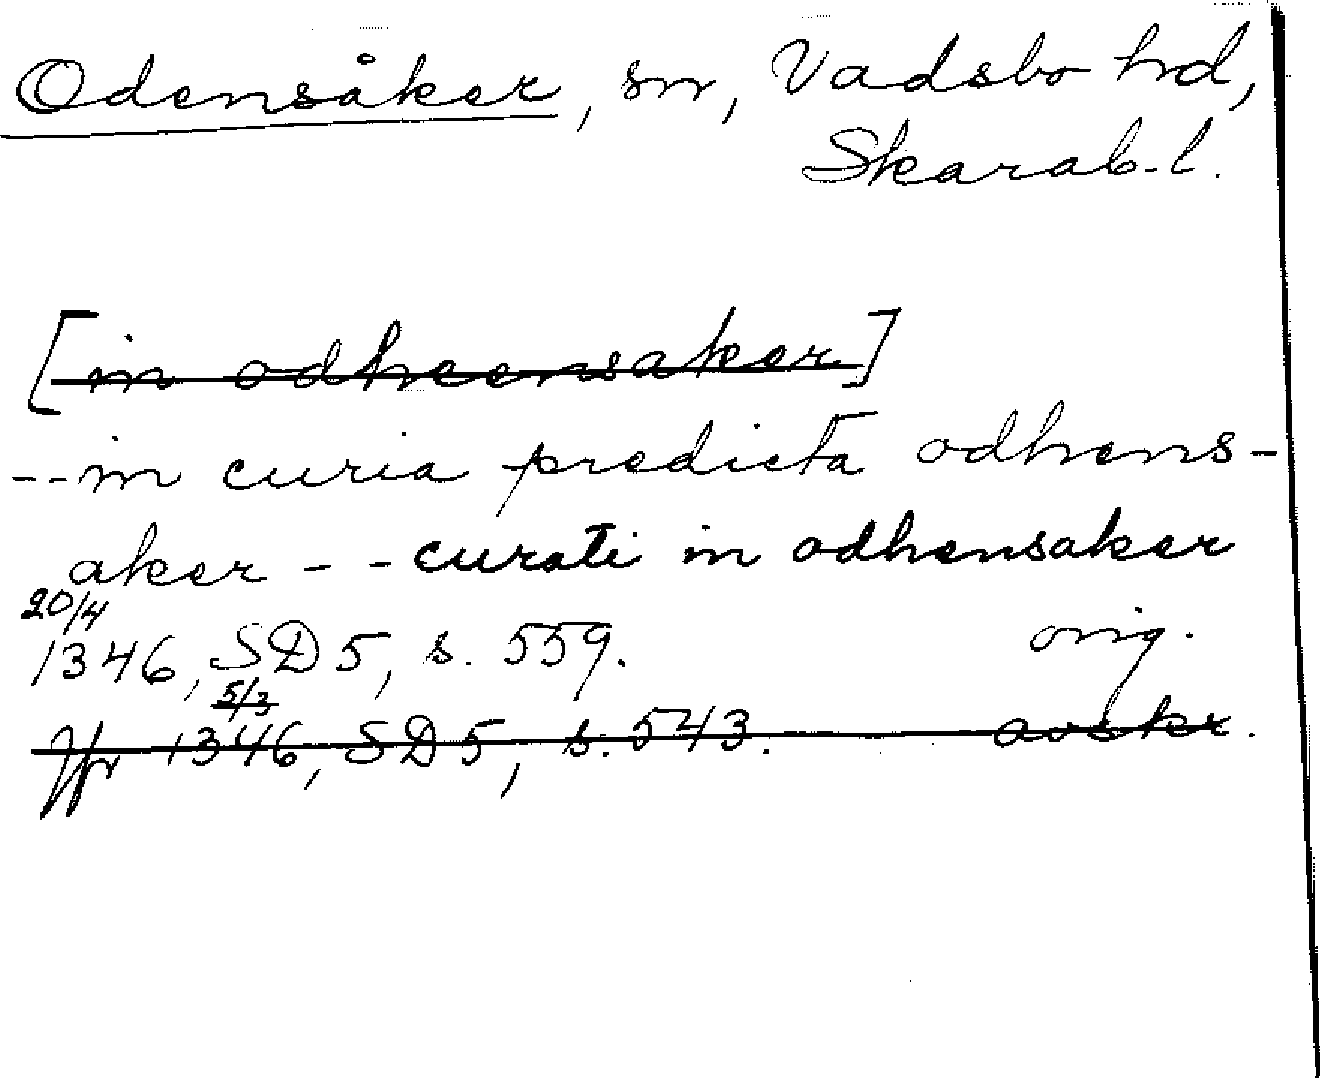 Odensåker, sn, Vadsbo hd,
Skarab.l.
[in odheensaker]
--in curia predicta odhens-
aker -- curati in odhensaker
20/4
1346, SD 5, s. 559. orig.
5/3
Jfr 1346, SD 5, s. 543. avskr.